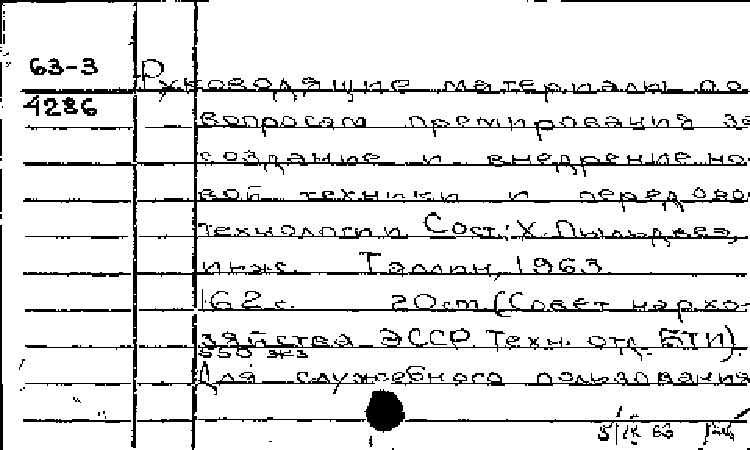 63-3 Руководящие материалы по
4286 вопросам премирования за
создание и внедрение но-
вой техники и передовой
технологии Сост.: Х. Пыльдвеэ,
инж. Таллин, 1963.
162 с. 20 см (Совет нар. хо-
зяйства ЭССР. Техн. отд. БТИ).
550 экз
Для служебного пользования